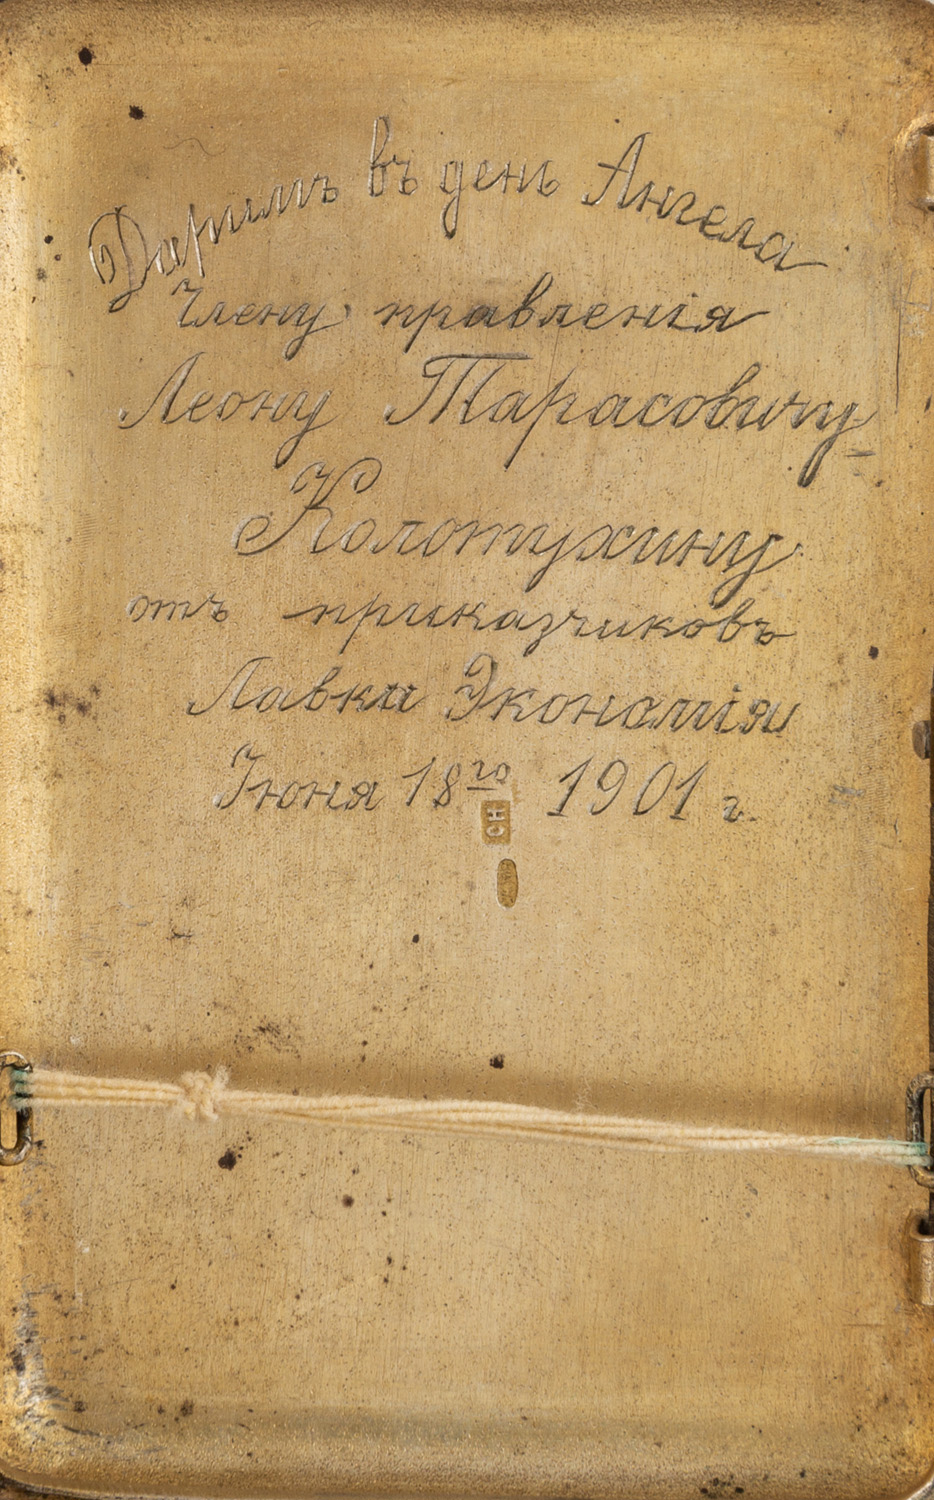 Даримъ въ день Ангела
Члену правленія
Леону Тарасовичу
Колотухину
отъ приказчиковъ
Лавка Экономія
Іюня 18го 1901 г.
СН